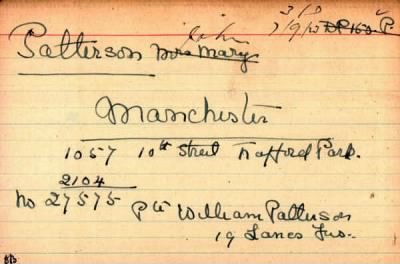 John 3/8
Patterson Mrs Mary 7/9/15 DP 162 P
Manchester
1057 10th Street Trafford Park.
2104
No 27575 Pte William Patterson
19 Lancs Fus.